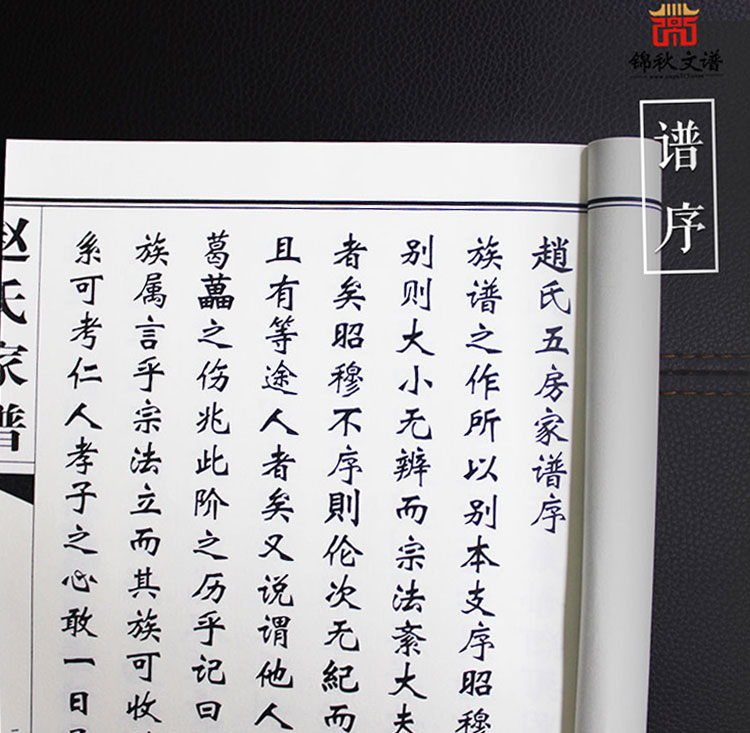 锦秋文谱
谱序
趙氏五房家谱序
族谱之作所以别本支序昭穆
别则大小无辨而宗法紊大夫
者矣昭穆不序則伦次无紀而
且有等途人者矣又说谓他人
葛藟之伤兆此阶之历乎记曰
族属言乎宗法立而其族可收
系可考仁人孝子之心敢一日
赵氏家谱